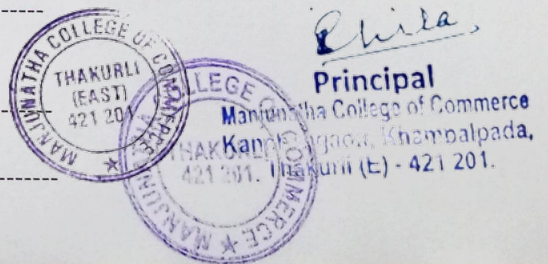 MANJUNATHA COLLEGE OF COMMERCE
THAKURLI
(EAST)
421 201
★
MANJUNATHA COLLEGE OF COMMERCE
THAKURLI
421 201.
★
Principal
Manjunatha College of Commerce
Khambalpada,
Thakurli (E) - 421 201.